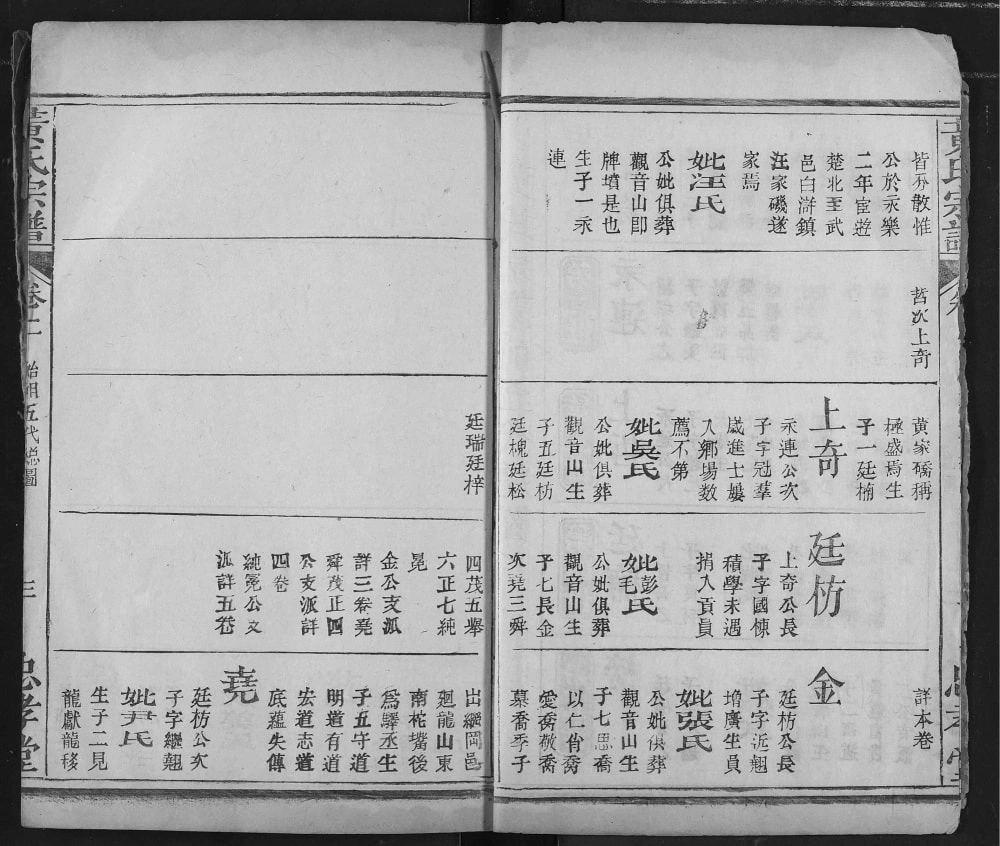 皆分散惟
公於永樂
二年宦遊
楚北至武
邑白滸鎮
汪家磯遂
家焉
妣汪氏
公妣俱葬
觀音山即
牌墳是也
生子一永
連
哲次上奇
黃家礄稱
極盛焉生
子一廷楠
上奇
永連公次
子字冠羣
歲進士屢
入鄉場數
薦不第
妣吳氏
公妣俱葬
觀音山生
子五廷枋
廷槐廷松
廷枋
上奇公長
子字國棟
積學未遇
捐入貢員
妣彭氏
毛
公妣俱葬
觀音山生
子七長金
次堯三舜
詳本卷
金
廷枋公長
子字近翹
增廣生員
妣張氏
公妣俱葬
觀音山生
子七思喬
以仁肖喬
愛喬敬喬
慕喬季子
廷瑞廷梓
四茂五舉
六正七純
冕
金公支派
詳三卷堯
舜茂正四
公支派詳
四卷
純冕公支
派詳五卷
出繼岡邑
迴龍山東
南柁嘴後
爲驛丞生
子五守道
明道有道
宏道志道
底蘊失傳
堯
廷枋公次
子字繼翹
妣尹氏
生子二見
龍獻龍移
黃氏宗譜
卷二
始祖五代總圖
三
忠孝堂